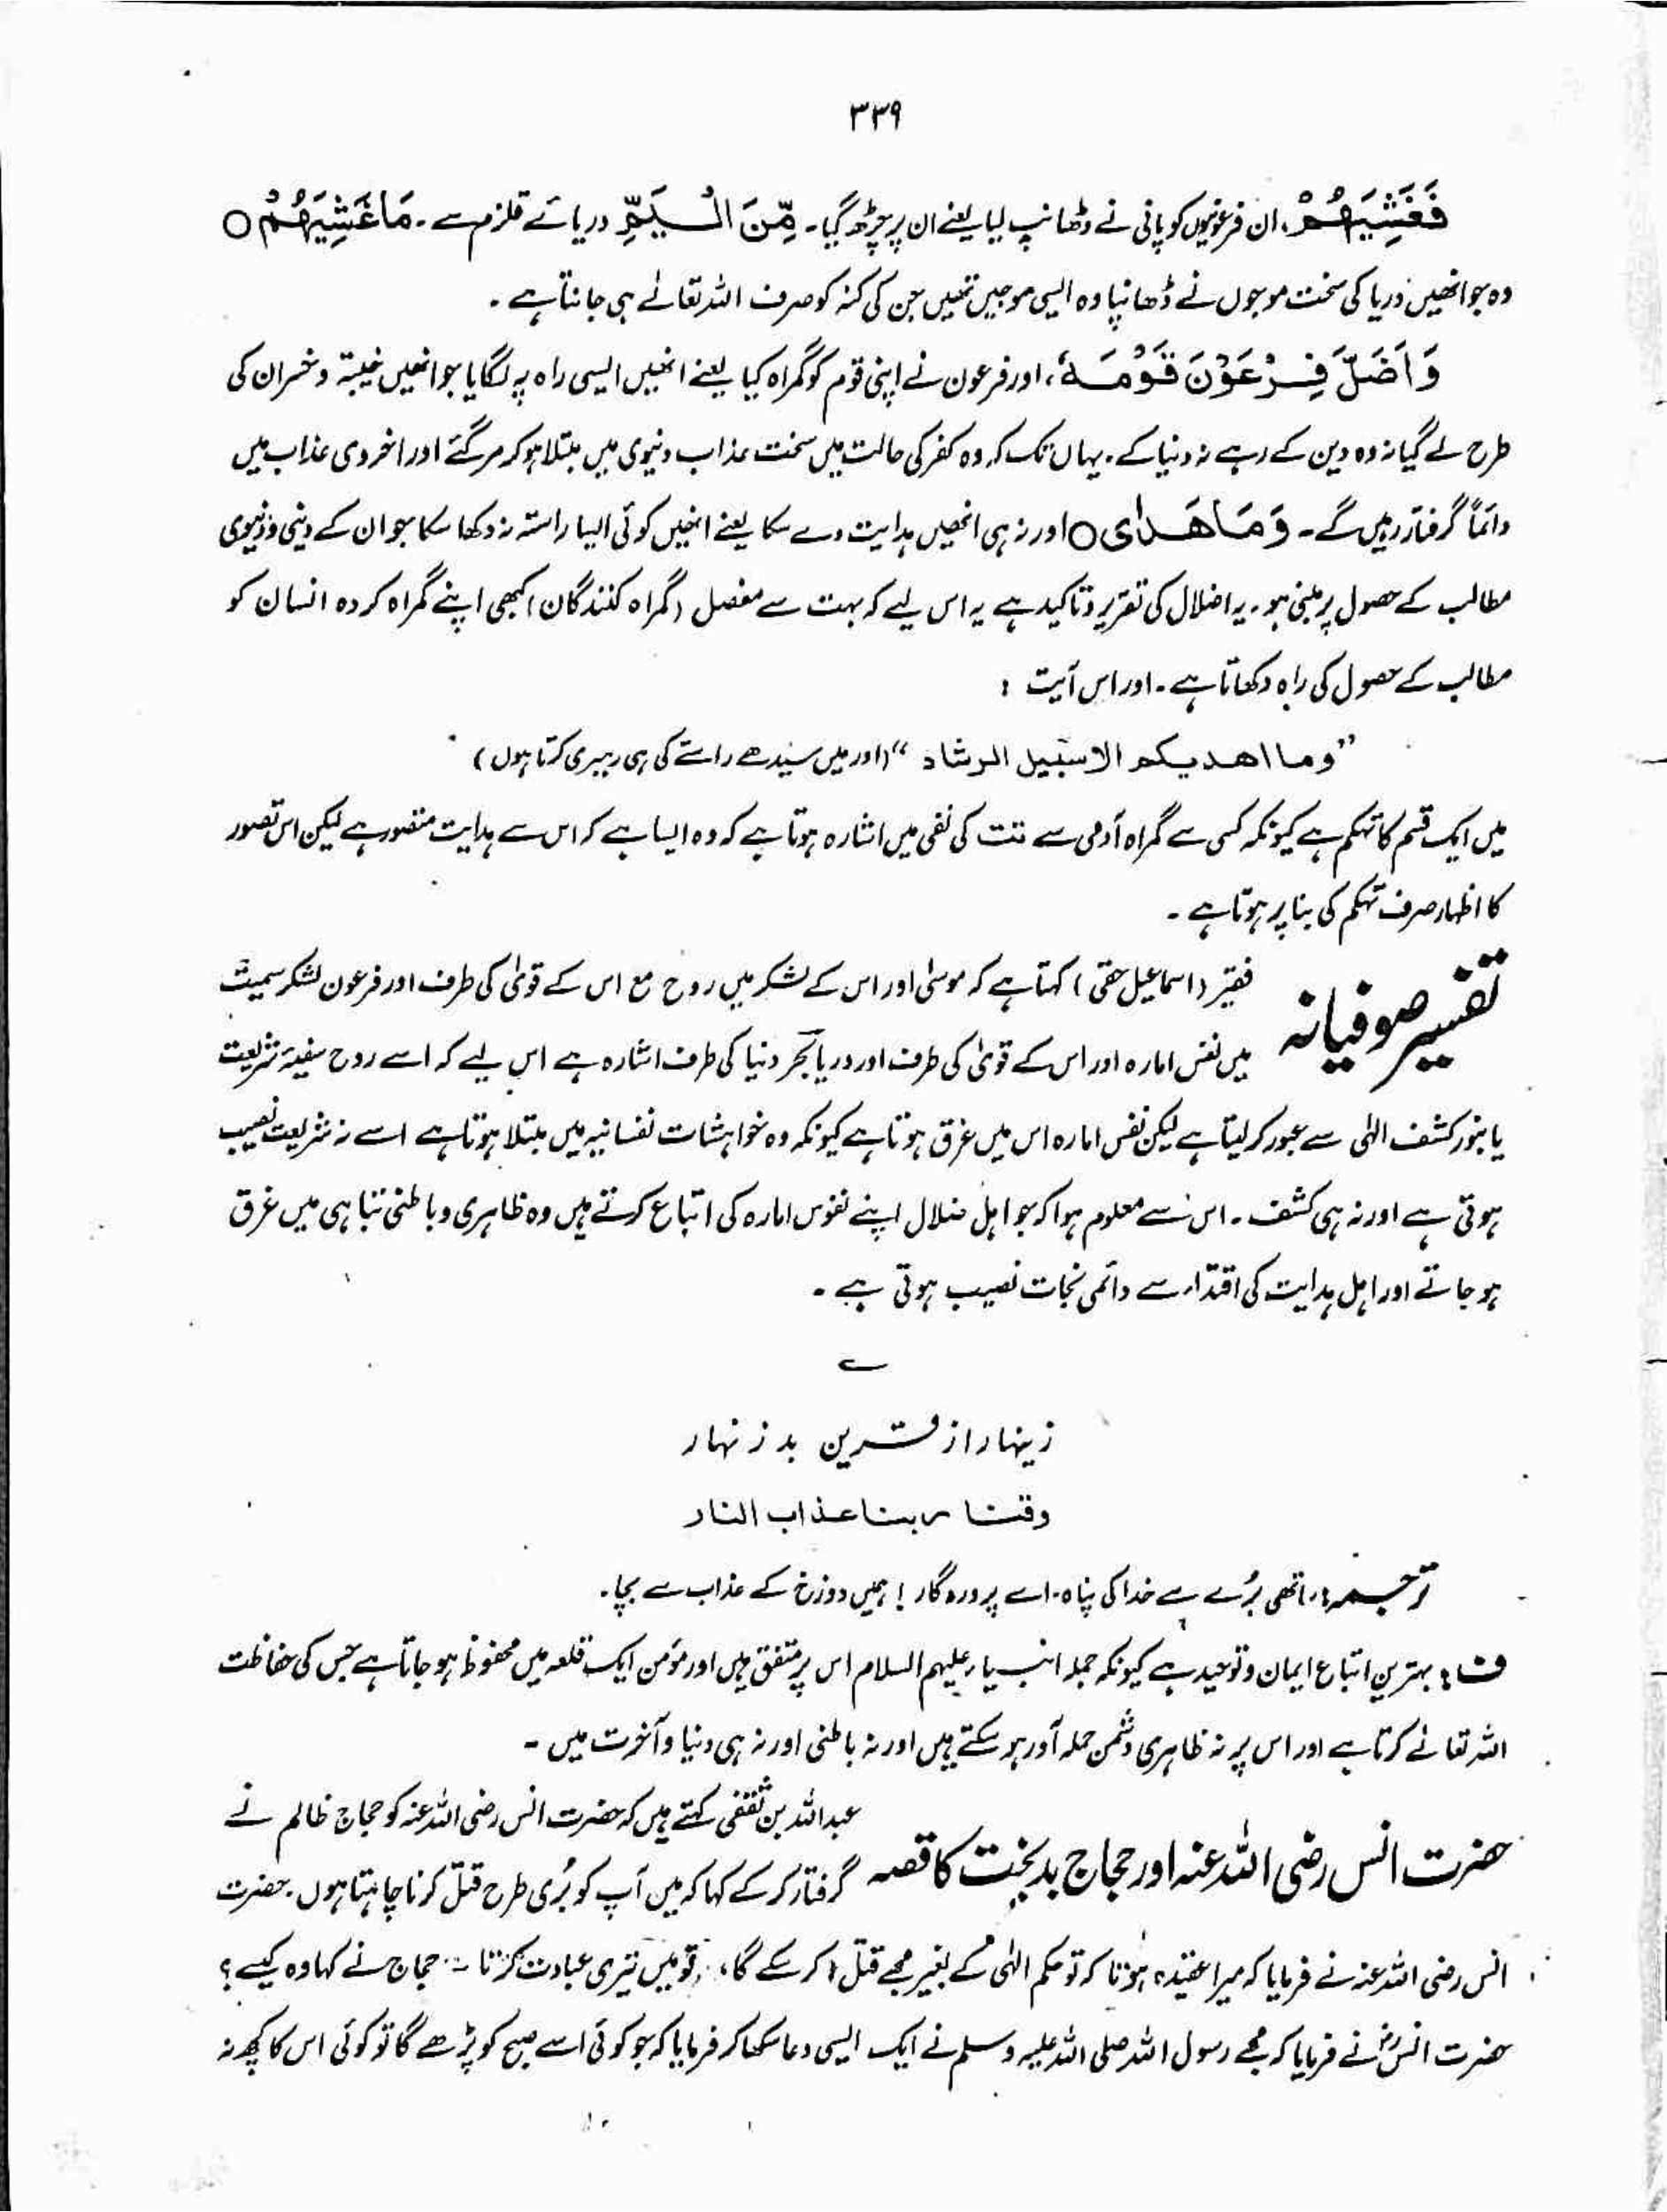 ۳۳۹
فَغَشِيَهُمْ، ان فرعونیوں کو پانی نے ڈھانپ لیا یعنے ان پر چڑھ گیا۔ مِّنَ الْيَمِّ دریائے قلزم سے۔ مَا غَشِيَهُمْ ○
وہ جو انھیں دریا کی سخت موجوں نے ڈھانپا وہ ایسی موجیں تھیں جن کی کنہ کو صرف اللہ تعالٰے ہی جانتا ہے۔
وَاَضَلَّ فِرْعَوْنَ قَوْمَهٗ، اور فرعون نے اپنی قوم کو گمراہ کیا یعنے انھیں ایسی راہ پہ لگایا جو انھیں خیبتہ و خسران کی
طرح لے گیا نہ وہ دین کے رہے نہ دنیا کے۔ یہاں تک کہ وہ کفر کی حالت میں سخت عذاب دنیوی میں مبتلا ہو کر مر گئے اور اخروی عذاب میں
دائماً گرفتار رہیں گے۔ وَمَا هَدٰى ○ اور نہ ہی انھیں ہدایت دے سکا یعنے انھیں کوئی ایسا راستہ نہ دکھا سکا جو ان کے دینی و دنیوی
مطالب کے حصول پر مبنی ہو۔ یہ اضلال کی تقریر و تاکید ہے یہ اس لیے کہ بہت سے مفصل (گمراہ کنندگان) کبھی اپنے گمراہ کردہ انسان کو
مطالب کے حصول کی راہ دکھاتا ہے۔ اور اس آیت :
”وما اھدیکم الا سبیل الرشاد“ (اور میں سیدھے راستے کی ہی رہبری کرتا ہوں)
میں ایک قسم کا تہکم ہے کیونکہ کسی سے گمراہ آدمی سے نت کی نفی میں اشارہ ہوتا ہے کہ وہ ایسا ہے کہ اس سے ہدایت متصور ہے لیکن اس تصور
کا اظہار صرف تہکم کی بنا پر ہوتا ہے۔
تفسیر صوفیانہ
فقیر (اسماعیل حقی) کہتا ہے کہ موسٰی اور اس کے لشکر میں روح مع اس کے قوٰی کی طرف اور فرعون لشکر سمیت
میں نفس امارہ اور اس کے قوٰی کی طرف اور دریا بحر دنیا کی طرف اشارہ ہے اس لیے کہ اسے روح سفینۂ شریعت
یا بنور کشف الٰہی سے عبور کر لیتا ہے لیکن نفس امارہ اس میں غرق ہوتا ہے کیونکہ وہ خواہشات نفسانیہ میں مبتلا ہوتا ہے اسے نہ شریعت نصیب
ہوتی ہے اور نہ ہی کشف۔ اس سے معلوم ہوا کہ جو اہل ضلال اپنے نفوس امارہ کی اتباع کرتے ہیں وہ ظاہری و باطنی تباہی میں غرق
ہو جاتے اور اہل ہدایت کی اقتداء سے دائمی نجات نصیب ہوتی ہے۔
؎
زینہار از قرین بد زنہار
وقنا ربنا عذاب النار
ترجمہ: ساتھی بُرے سے خدا کی پناہ۔ اے پروردگار! ہمیں دوزخ کے عذاب سے بچا۔
ف : بہترین اتباع ایمان و توحید ہے کیونکہ جملہ انبیاء علیہم السلام اس پر متفق ہیں اور مؤمن ایک قلعہ میں محفوظ ہو جاتا ہے جس کی حفاظت
اللہ تعالٰے کرتا ہے اور اس پر نہ ظاہری دشمن حملہ آور ہو سکتے ہیں اور نہ باطنی اور نہ ہی دنیا و آخرت میں۔
حضرت انس رضی اللہ عنہ اور حجاج بدبخت کا قصہ
عبداللہ بن ثقفی کہتے ہیں کہ حضرت انس رضی اللہ عنہ کو حجاج ظالم نے
گرفتار کر کے کہا کہ میں آپ کو بُری طرح قتل کرنا چاہتا ہوں۔ حضرت
انس رضی اللہ عنہ نے فرمایا کہ میرا عقیدہ ہوتا کہ تو حکم الٰہی کے بغیر مجھے قتل کر سکے گا، تو میں تیری عبادت کرتا۔ حجاج نے کہا وہ کیسے؟
حضرت انسؓ نے فرمایا کہ مجھے رسول اللہ صلی اللہ علیہ وسلم نے ایک ایسی دعا سکھا کر فرمایا کہ جو کوئی اسے صبح کو پڑھے گا تو کوئی اس کا کچھ نہ